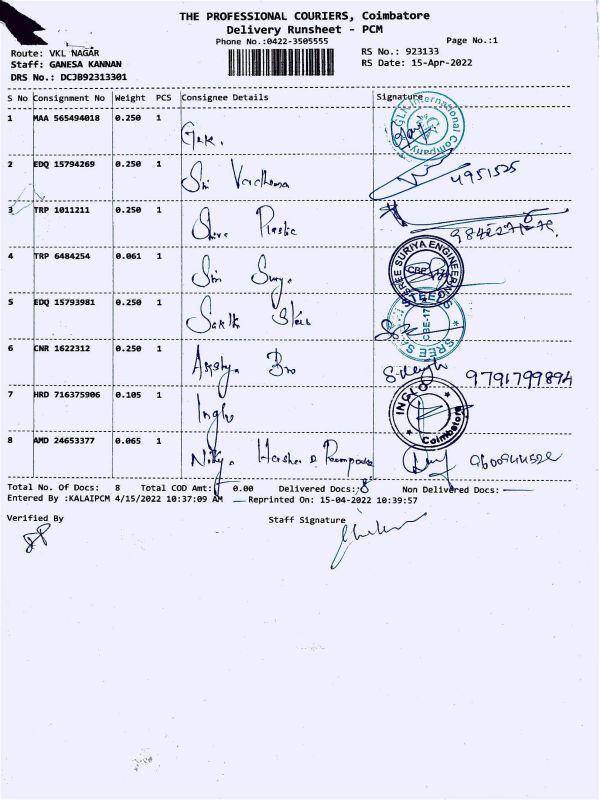 THE PROFESSIONAL COURIERS, Coimbatore
Delivery Runsheet - PCM
Phone No.:0422-3505555
Page No.:1
Route: VKL NAGAR
RS No.: 923133
Staff: GANESA KANNAN
RS Date: 15-Apr-2022
DRS No.: DCJB92313301
S No Consignment No Weight PCS Consignee Details Signature
1 MAA 565494018 0.250 1
GLK International Company
2 EDQ 15794269 0.250 1 Sri Vardhama 4951525
3 TRP 1011211 0.250 1 Shiva Plastic
4 TRP 6484254 0.061 1 Sri Surya
SREE SURIYA ENGINEERING
CBE
5 EDQ 15793981 0.250 1 Sakthi Steels
CBE-17
6 CNR 1622312 0.250 1 Akshya Bro 9791799894
7 HRD 716375906 0.105 1 Inglo
INGLO Coimbatore
8 AMD 24653377 0.065 1
Total No. Of Docs: 8 Total COD Amt: 0.00 Delivered Docs: 8 Non Delivered Docs:
Entered By :KALAIPCM 4/15/2022 10:37:09 AM Reprinted On: 15-04-2022 10:39:57
Verified By Staff Signature